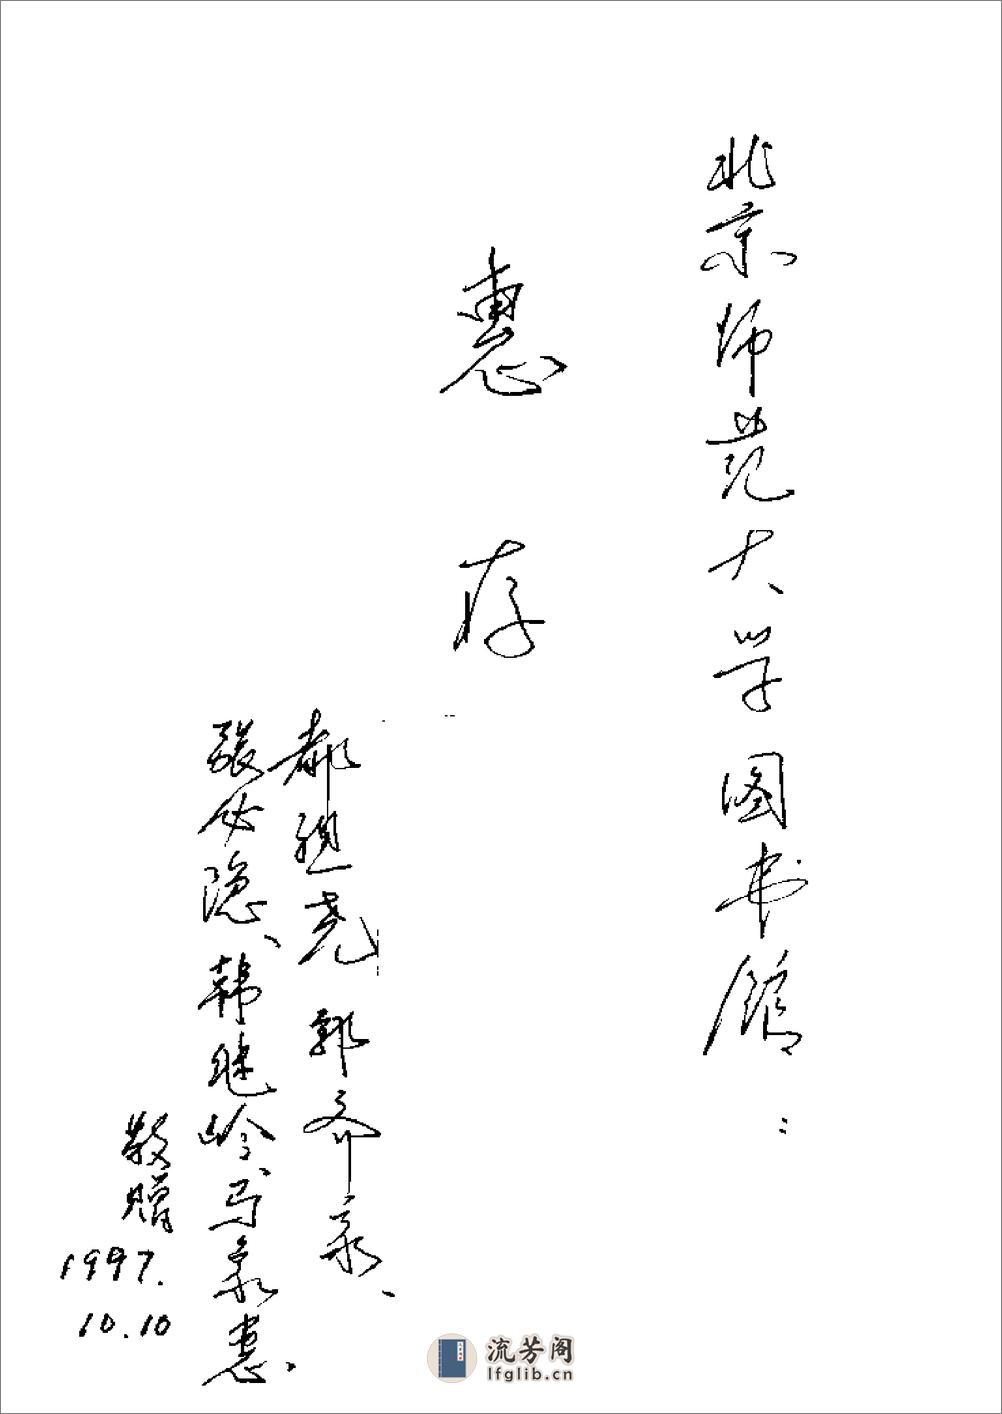 北京师范大学图书馆：
惠存
尧 郭齐家、
张必隐、韩继岭、惠、
敬赠
1997.
10.10
流芳阁
lfglib.cn